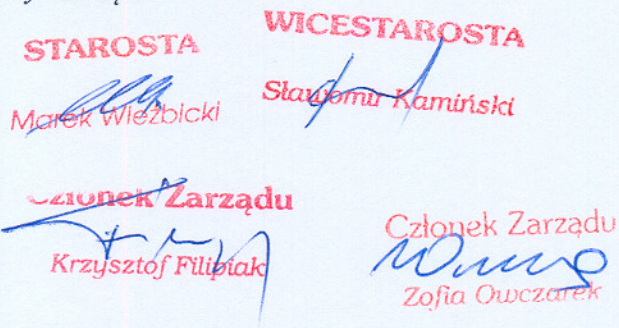 STAROSTA
Marek Wieźbicki
WICESTAROSTA
Sławomir Kamiński
Członek Zarządu
Krzysztof Filipiak
Członek Zarządu
Zofia Owczarek